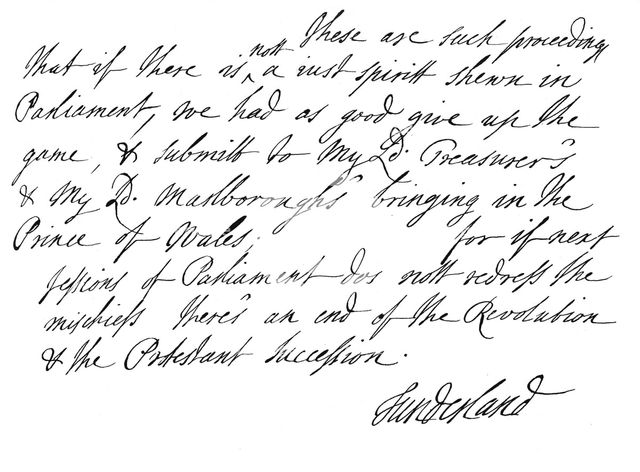 These are such proceedings
that if there is nott a just spiritt shewn in
Parliament, we had as good give up the
game, & submitt to My Ld. Treasurer's
& My Ld. Marlborough's bringing in the
Prince of Wales; for if next
sessions of Parliament dos nott redress the
mischiefs there's an end of the Revolution
& the Protestant Succession.
Sunderland